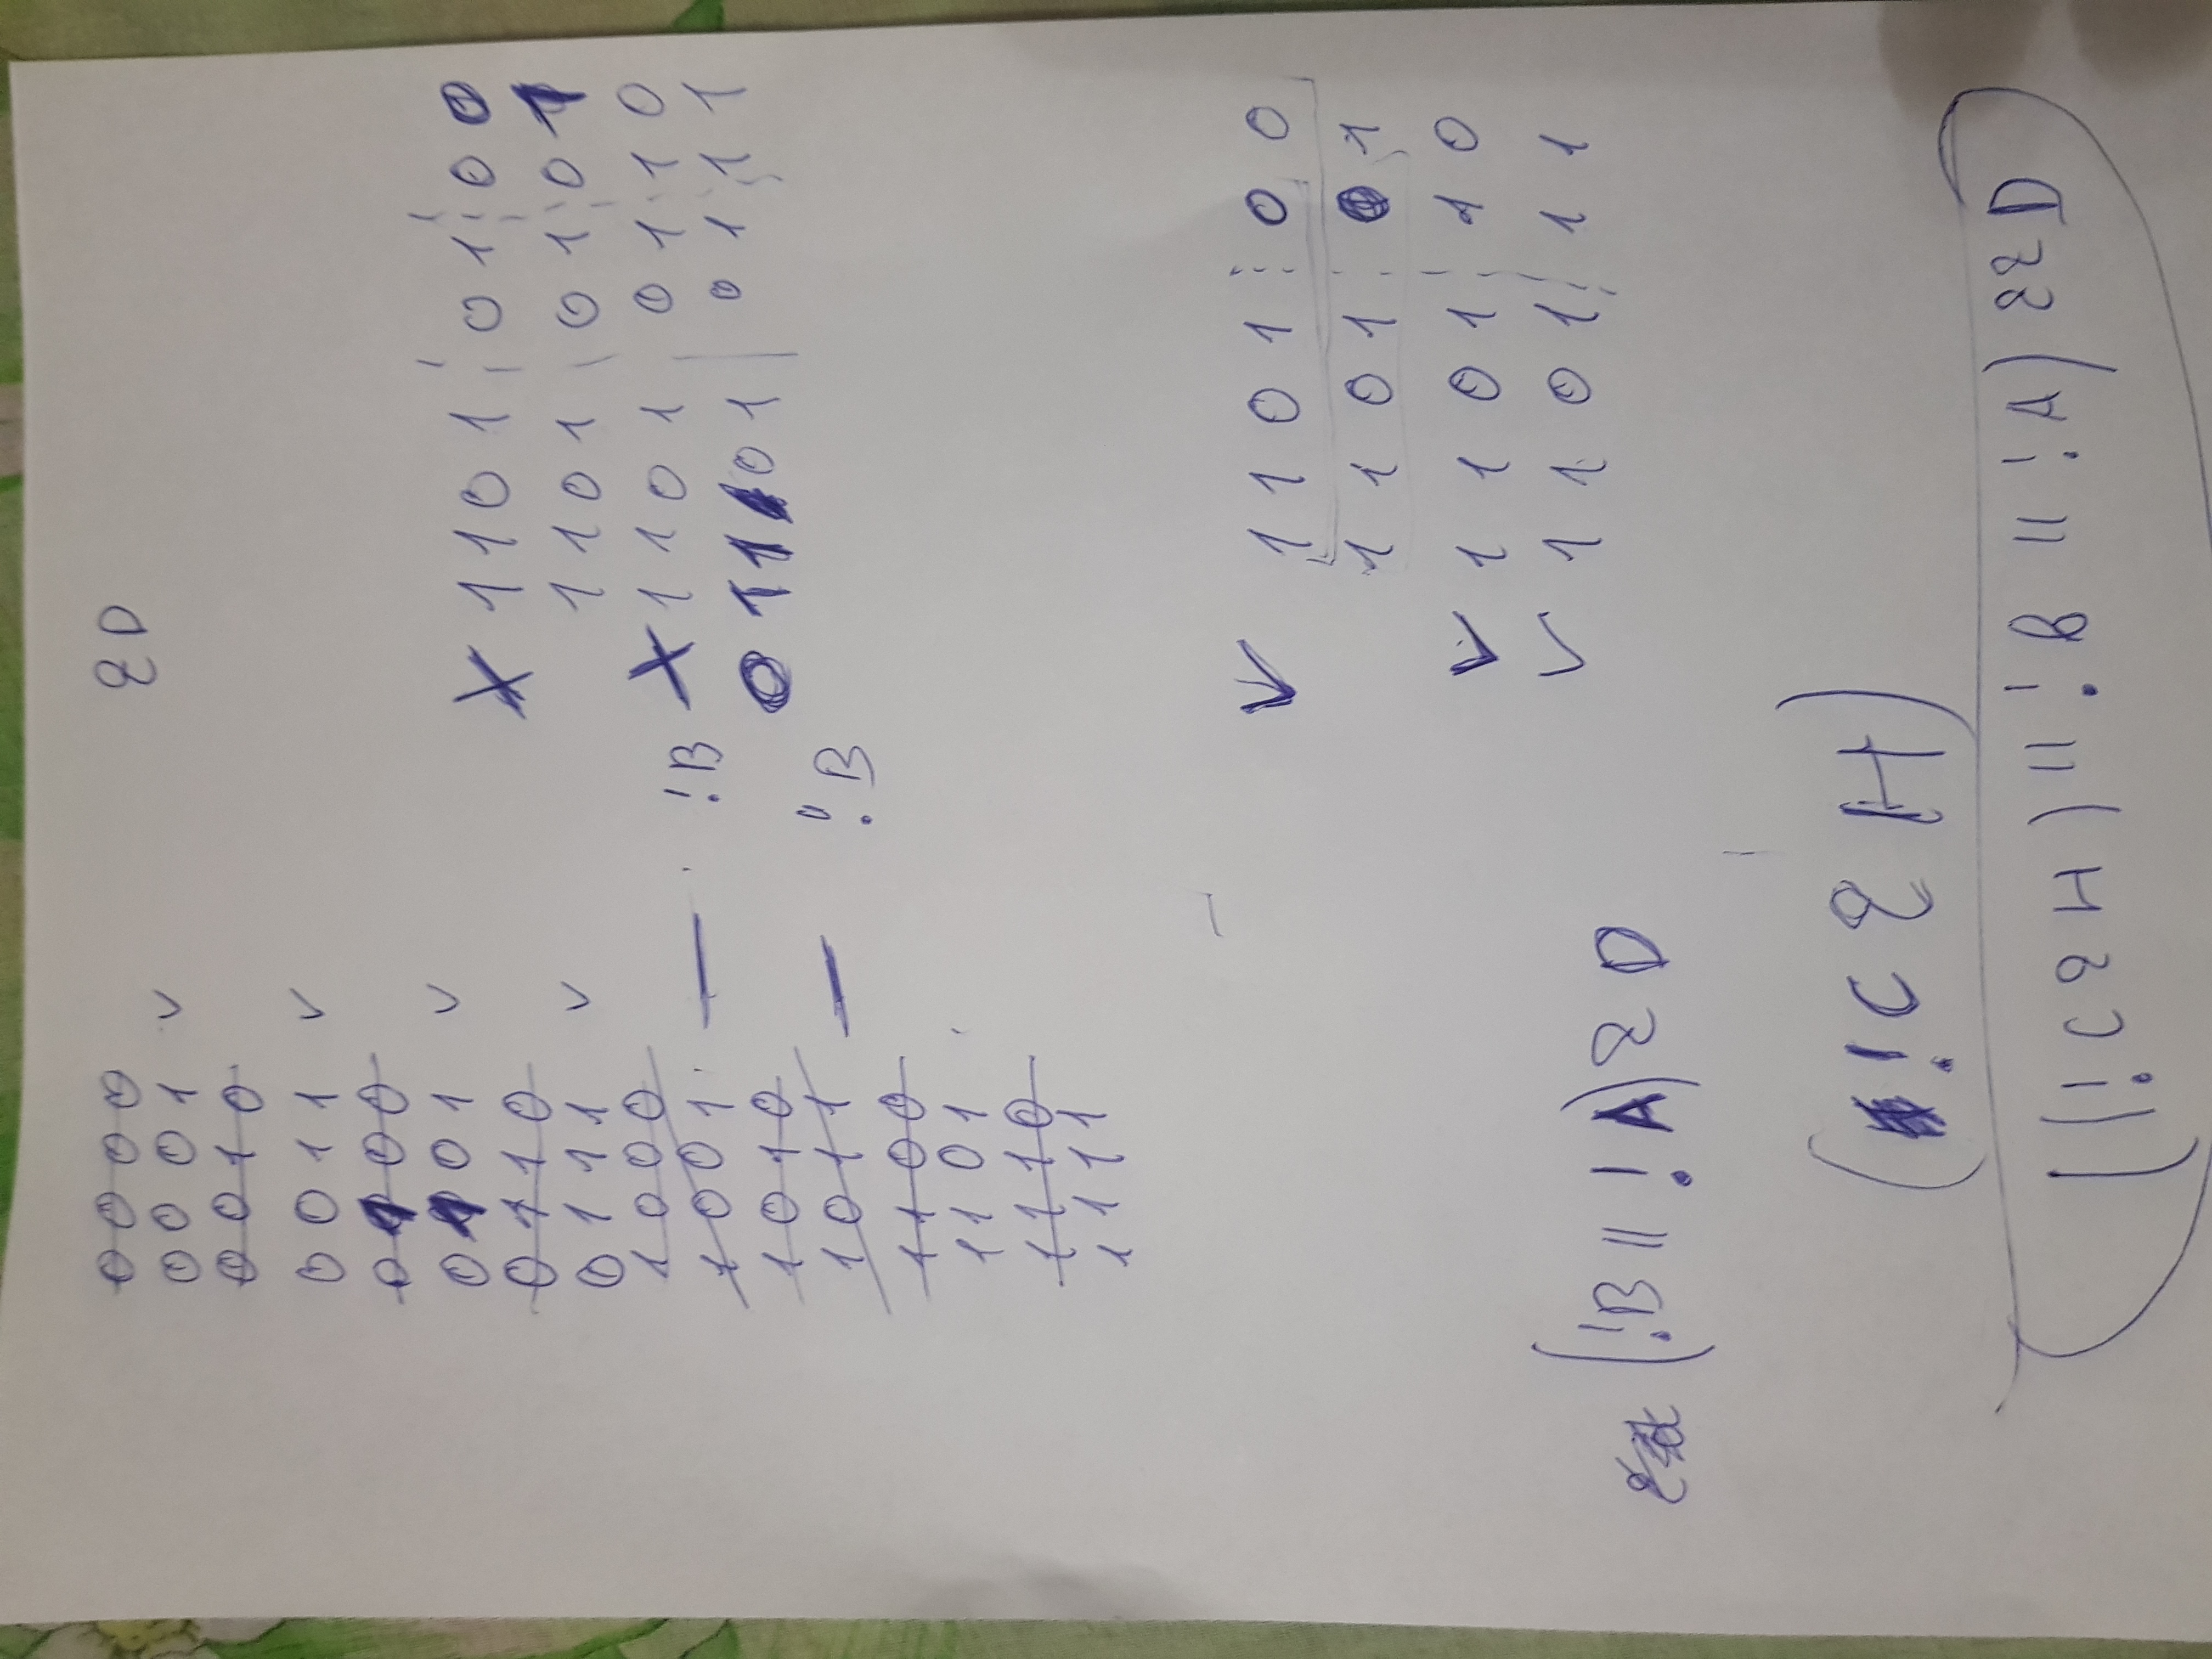 0 0 0 0
0 0 0 1 ✓
0 0 1 0
0 0 1 1 ✓
0 1 0 0
0 1 0 1 ✓
0 1 1 0
0 1 1 1 ✓
1 0 0 0
1 0 0 1 — !B
1 0 1 0
1 0 1 1 — !B
1 1 0 0
1 1 0 1
1 1 1 0
1 1 1 1
& D
X 1 1 0 1 ¦ 0 1 ¦ 0 0
1 1 0 1 ¦ 0 1 ¦ 0 1
X 1 1 0 1 ¦ 0 1 ¦ 1 0
0 1 1 0 1 | 0 1 ¦ 1 1
✓ 1 1 0 1 ¦ 0 0
1 1 0 1 ¦ 0 1
✓ 1 1 0 1 ¦ 1 0
✓ 1 1 0 1 ¦ 1 1
(!B || !A) & D
(!C & H)
((!C & H) || !B || !A) && D